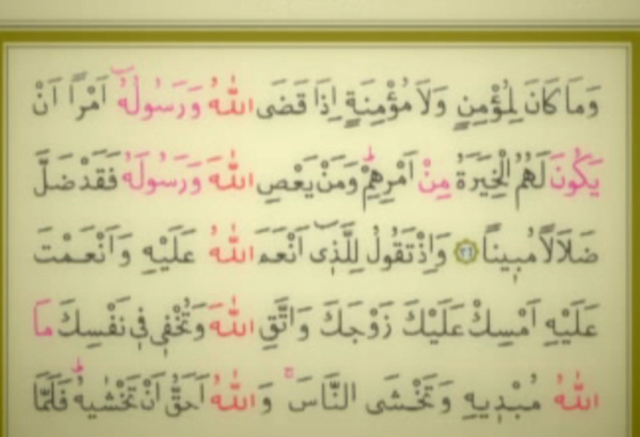 وَمَا كَانَ لِمُؤْمِنٍ وَلَا مُؤْمِنَةٍ اِذَا قَضَى اللّٰهُ وَرَسُولُهُٓ اَمْرًا اَنْ
يَكُونَ لَهُمُ الْخِيَرَةُ مِنْ اَمْرِهِمْۜ وَمَنْ يَعْصِ اللّٰهَ وَرَسُولَهُ فَقَدْ ضَلَّ
ضَلَالًا مُبِينًا ﴿٣٦﴾ وَاِذْ تَقُولُ لِلَّذِٓى اَنْعَمَ اللّٰهُ عَلَيْهِ وَاَنْعَمْتَ
عَلَيْهِ اَمْسِكْ عَلَيْكَ زَوْجَكَ وَاتَّقِ اللّٰهَ وَتُخْفِى فِى نَفْسِكَ مَا
اللّٰهُ مُبْدِيهِ وَتَخْشَى النَّاسَۚ وَاللّٰهُ اَحَقُّ اَنْ تَخْشٰيهُۜ فَلَمَّا